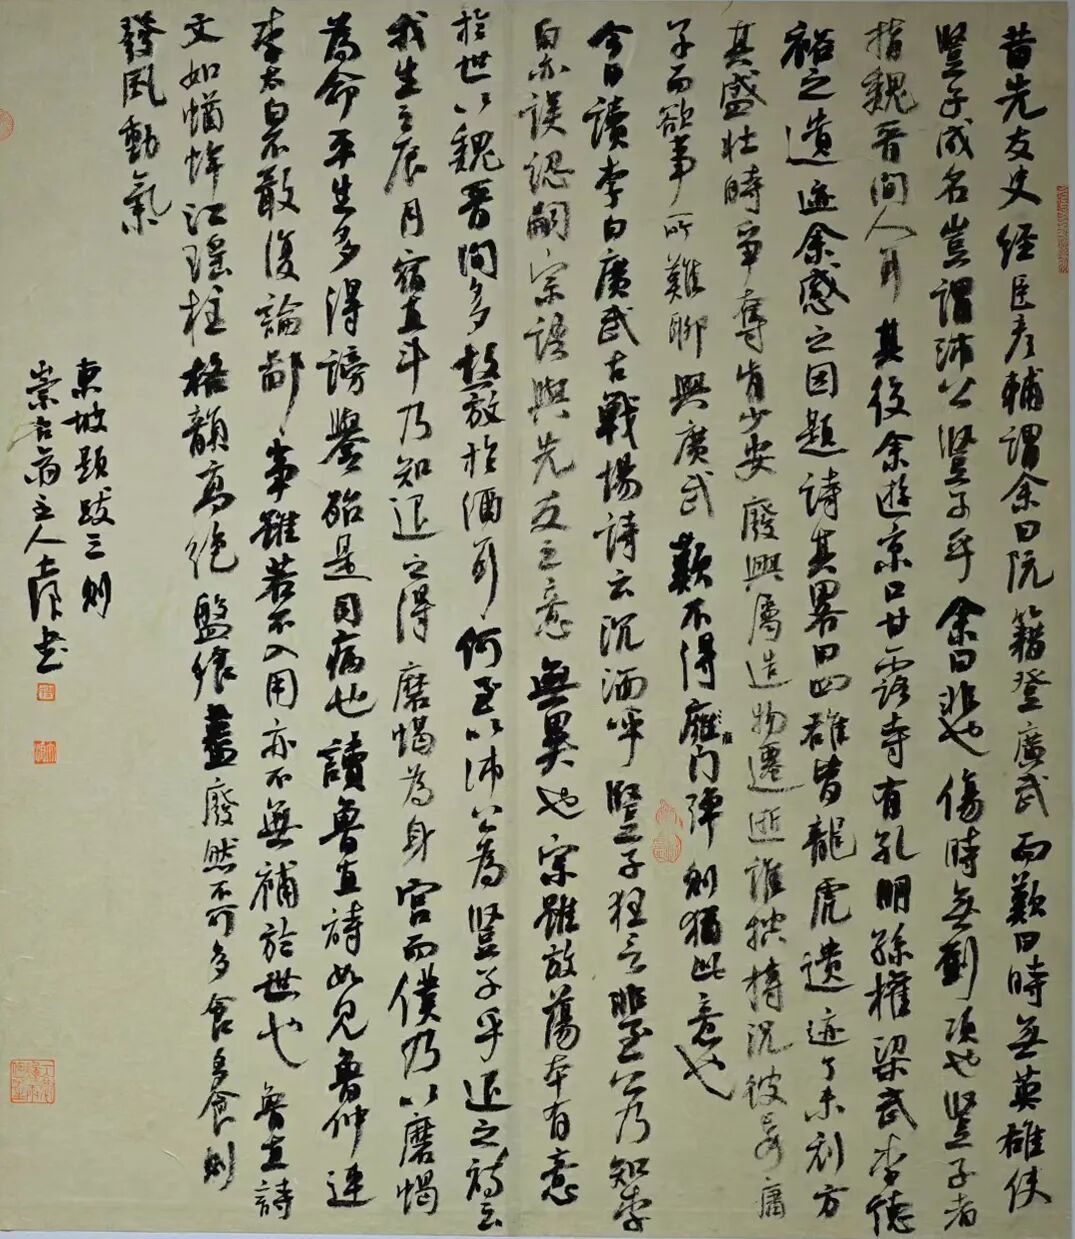 昔先友史經臣彥輔謂余曰阮籍登廣武而歎曰時無英雄使
豎子成名豈謂沛公豎子乎余曰非也傷時無劉項也豎子者
指魏晉間人耳其後余遊京口甘露寺有孔明孫權梁武李德
裕之遺迹余感之因題詩其畧曰四雄皆龍虎遺迹了未刓方
其盛壯時爭奪肯少安廢興屬造物遷逝誰控摶況彼妄庸
子而欲事所難聊興廣武歎不得雍門彈則猶此意也
今日讀李白廣武古戰場詩云沉湎呼豎子狂言非至公乃知李
白亦誤認嗣宗語與先友之意無異也宗雖放蕩本有意
於世以魏晉間多故放於酒耳何至以沛公為豎子乎退之詩云
我生之辰月宿直斗乃知退之得磨蝎為身宮而僕乃以磨蝎
為命平生多得謗譽殆是同病也讀魯直詩如見魯仲連
李太白不敢復論鄙事雖若不入用亦不無補於世也魯直詩
文如蝤蛑江瑤柱格韻高絕盤飧盡廢然不可多食多食則
發風動氣
東坡題跋三則
崇古齋主人 書